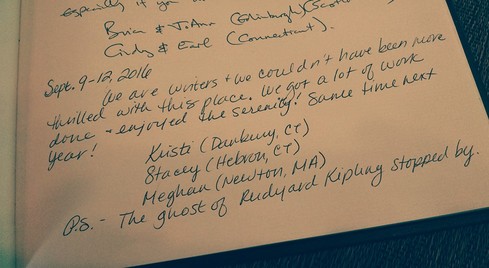 especially if you
Brian & JoAnn (Edinburgh, Scot
Cindy & Earl (Connecticut).
Sept. 9-12, 2016
We are writers & we couldn't have been more
thrilled with this place. We got a lot of work
done & enjoyed the serenity! Same time next
year!
Kristi (Danbury, CT)
Stacey (Hebron, CT)
Meghan (Newton, MA)
P.S. - The ghost of Rudyard Kipling stopped by.